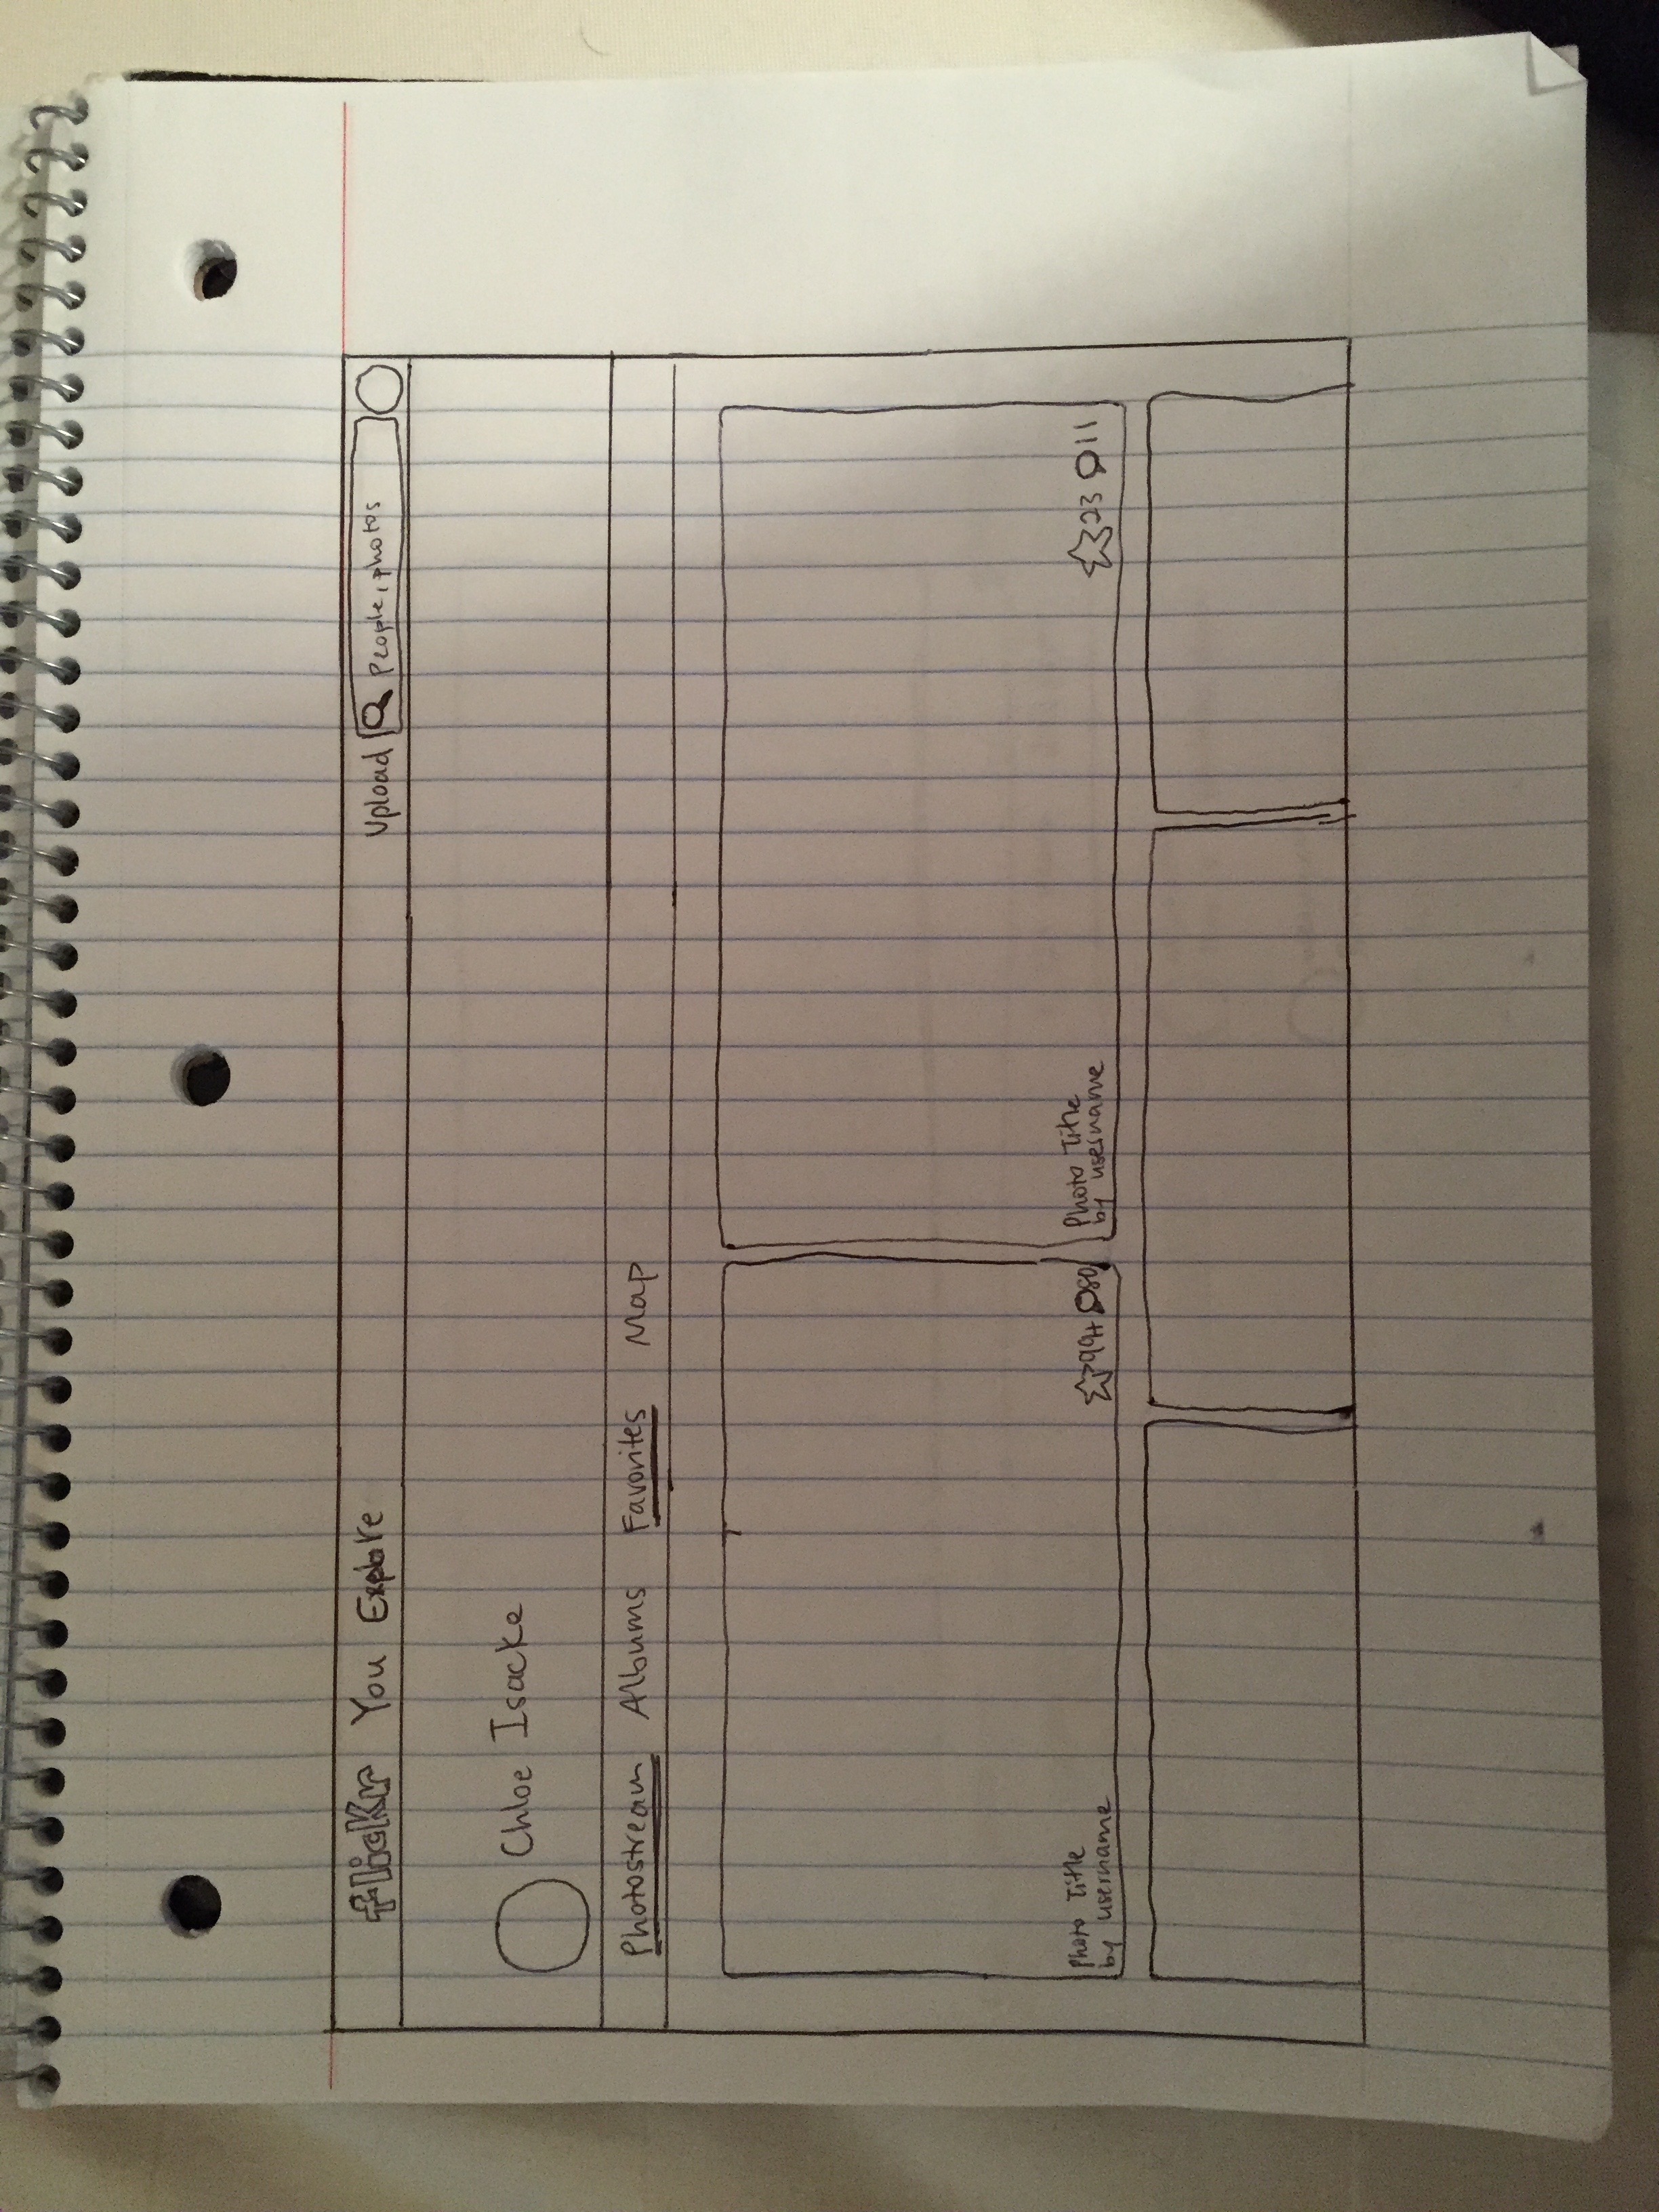 flickr You Explore Upload People, photos
Chloe Isacke
Photostream Albums Favorites Map
Photo Title
by username
99+
Photo Title
by username
23 11